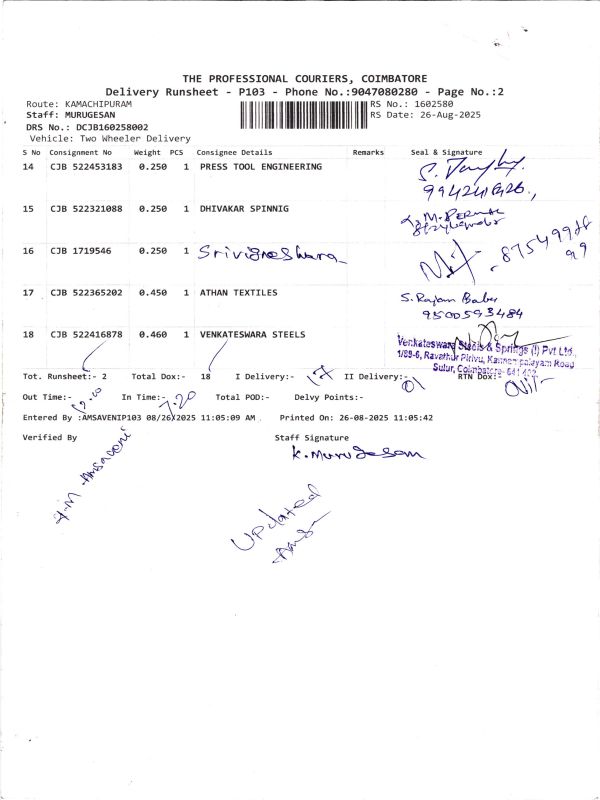 THE PROFESSIONAL COURIERS, COIMBATORE
Delivery Runsheet - P103 - Phone No.:9047080280 - Page No.:2
Route: KAMACHIPURAM
RS No.: 1602580
Staff: MURUGESAN
RS Date: 26-Aug-2025
DRS No.: DCJB160258002
Vehicle: Two Wheeler Delivery
S No Consignment No Weight PCS Consignee Details Remarks Seal & Signature
14 CJB 522453183 0.250 1 PRESS TOOL ENGINEERING
15 CJB 522321088 0.250 1 DHIVAKAR SPINNIG
16 CJB 1719546 0.250 1 Srivigneshwara 8754999899
17 CJB 522365202 0.450 1 ATHAN TEXTILES S. Rajan Babu
9500593484
18 CJB 522416878 0.460 1 VENKATESWARA STEELS
Venkateswara Steels & Springs (I) Pvt Ltd.,
1/89-6, Ravathur Pirivu, Kannampalayam Road
Sulur, Coimbatore- 641 402.
Tot. Runsheet:- 2 Total Dox:- 18 I Delivery:- 17 II Delivery:- 01 RTN Dox:-
Out Time:- 12.00 In Time:- 7.20 Total POD:- Delvy Points:-
Entered By :AMSAVENIP103 08/26/2025 11:05:09 AM . Printed On: 26-08-2025 11:05:42
Verified By Staff Signature
K. Murugesan
Updated